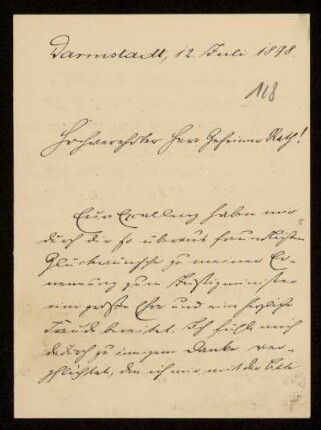 Darmstadt, 12. Juli 1898.
118
Hochverehrter Herr Geheimer Rath!
Eure Excellenz haben mir
durch die so überaus freundlichen
Glückwünsche zu meiner Er-
nennung zum Justizminister
eine große Ehre und eine herzliche
Freude bereitet. Ich fühle mich
dadurch zu innigem Danke ver-
pflichtet, den ich mir mit der Bitte